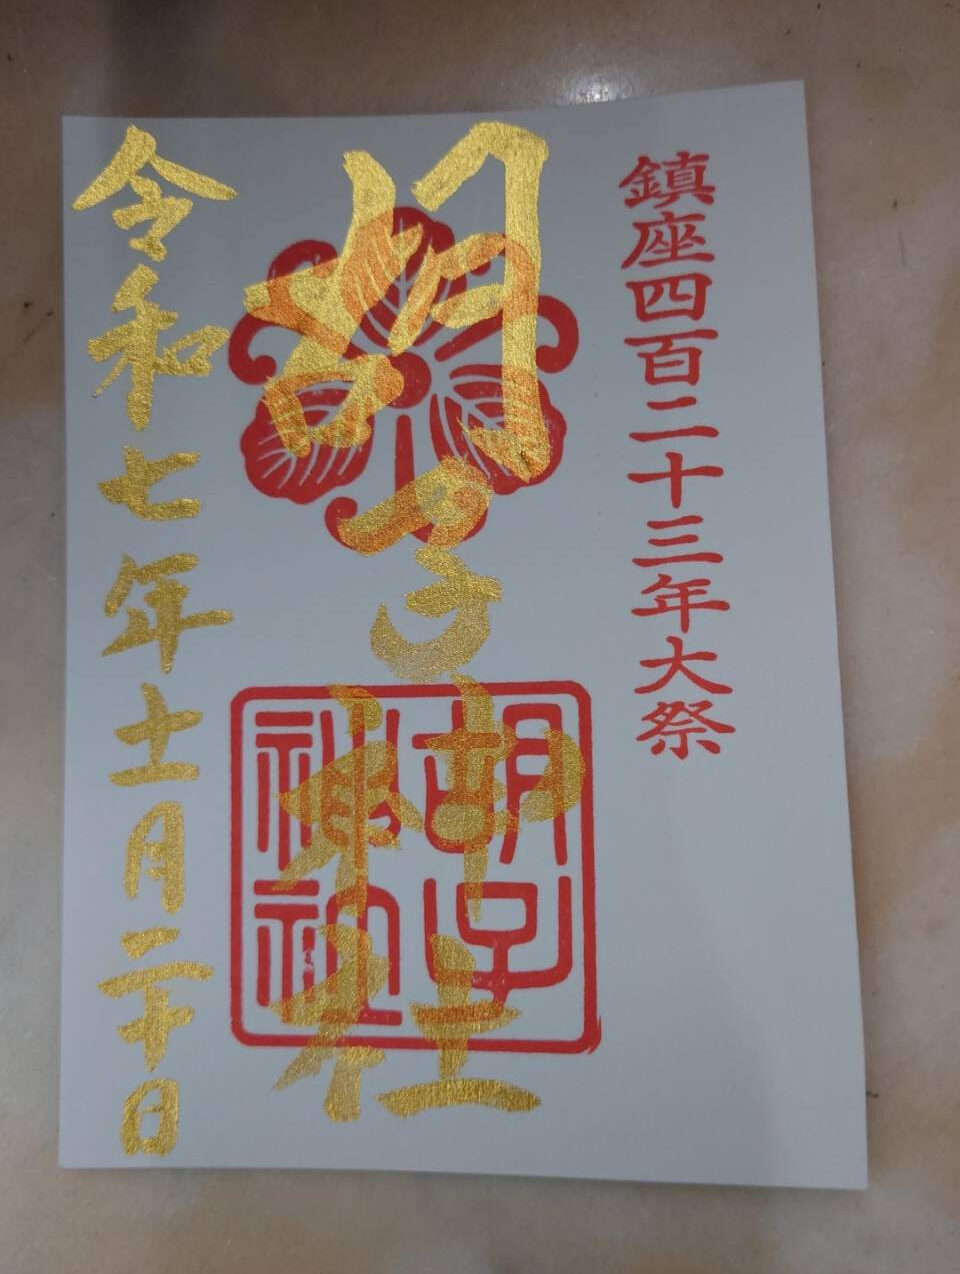 鎮座四百二十三年大祭
胡子神社
胡子神社
令和七年十一月二十日